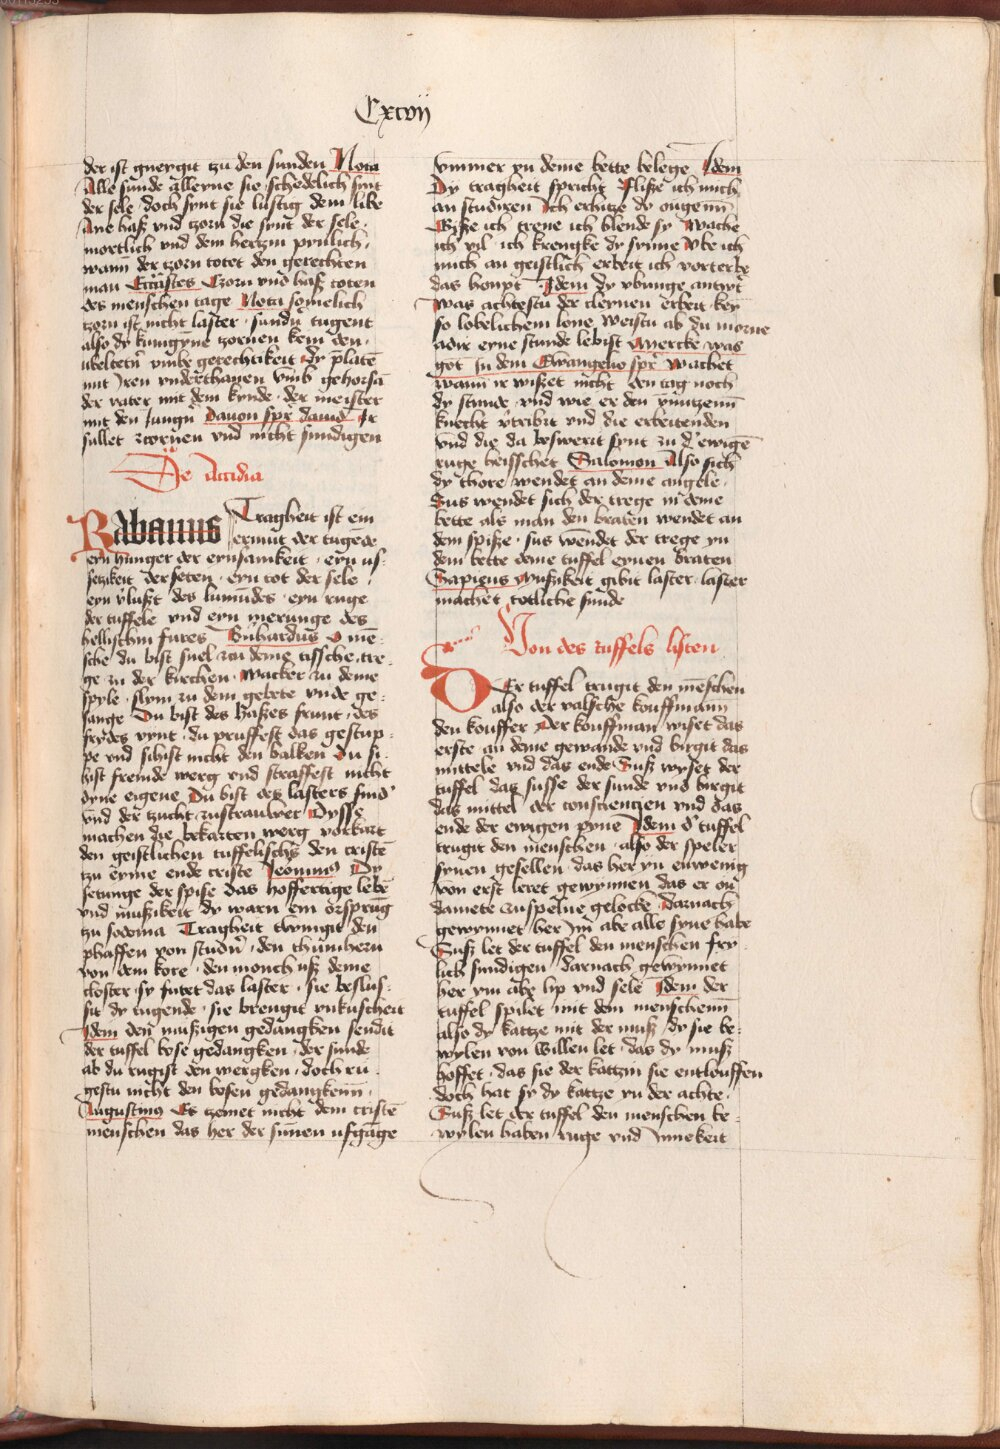 Cxcvij
der ist gneygit tzu den sunden Nota
Alle sunde alleyne sie schedelich sint
der sele doch synt sie lustig dem libe
Ane haß vnd tzorn die synt der sele
mortlich vnd dem hertzin pynlich
wann der tzorn totet den gerechten
man Ecc̄astes Czorn vnd haß toten
des menschen tage Nota somelich
tzorn ist nicht laster sundn̄ tugent
also dy kunigyne zornen kein den
vbeltetn̄ vmbe gerechtikeit dy p̄laten
mit iren vnderthanen vmb gehorsā
der vater mit dem kynde der meister
mit den jungn̄ Dauon spr̄ dauid Ir
sullet zcornen vnd nicht sundigen
De Accidia
Rabanus Tragheit ist ein
ermut der tugēde
eyn hunger der eynsamkeit eyn us
setzikeit der seten eyn tot der sele
eyn v̄lußt des lumūdes eyn ruge
der tuffele vnd eyn merunge des
hellischin fures Bnhardus O mē
sche du bist snel zcu deme tissche tre
ge zu der kirchen wacker zu deme
spyle slym zu dem gebete vnde ge
sange Du bist des haßes frunt des
frydes vynt du pruffest das gestup
pe vnd sihist nicht den balken Du si
hist fremde werg vnd straffest nicht
dyne eigene Du bist des lasters frund
vnd der tzucht zustrauwer Dysse
machen die bekarten werg vorkart
den geistlichen tuffelisch den cristē
tzu eyme ende criste Jeronimus Dy
setunge der spise das hoffertige lebē
vnd mußikeit dy warn ein orsprūg
tzu sodoma Tragheit twingit den
phaffen von studirn den thumhern
von dem kore den monch uß deme
closter sy futet das laster sie beslus
sit dy tugende sie brengit vnkuscheit
Idem den mußigen gedangken sendit
der tuffel bose gedangken der sunde
ab du rugist den wergken doch ru
gestu nicht den bosen gedangkenn
Augustinus Es tzemet nicht dem cristē
menschen das her der sunnen ufgāge
vmmer yn deme bette belege Idem
Dy tragheit spricht Fliße ich mich
an studiren Ich erhitze dy ougenn
Biße ich trene ich blende sy Wache
ich vil ich krengke dy synne Vbe ich
mich an geistlich erbeit ich vorterbe
das houpt Idem dy vbunge antwrt
Was achtestu der cleynen erbeit bey
so lobelichem lone Weistu ab du morne
adir eyne stunde lebist Mercke was
got In dem Ewangelio spr̄ Wachet
wann ir wißet nicht den tag noch
dy stunde vnd wie er den vnnutzenn
knecht v̄tribit vnd die erbeitenden
vnd die da beswerit synt zu d' ewigē
ruge heisschet Salomon Also sich
dy thore wendet an deme angele
Sus wendet sich der trege in deme
bette als man den braten wendet an
dem spiße sus wendet der trege yn
dem bette deme tuffel eynen braten
Sapiens Mußikeit gibit laster laster
machet totliche sunde
Von des tuffels listen
DEr tuffel trugit den menschen
also der valsche kouffmann
den kouffer Der kouffman wiset das
erste an deme gewande vnd birgit das
mittele vnd das ende Suß wyset der
tuffel das susse der sunde vnd birgit
das mittel der consciencien vnd das
ende der ewigen pyne Idem d' tuffel
trugit den menschen also der speler
synen gesellen das her yn einwenig
von erst leret gewynnen das er on
damete zuspelne gelocke Darnach
gewynnet her ym abe alle syne habe
Suß let der tuffel den menschen fry
lich sundigen darnach gewynnet
her ym abe lip vnd sele Idem der
tuffel spilet mit dem menschenn
also dy kattze mit der muß dy sie be
wylen von willen let das dy muß
hoffet das sie der kattzin sie entlouffen
doch hat sy dy kattze yn der achte
Suß let der tuffel den menschen be
wylen haben ruge vnd Innekeit